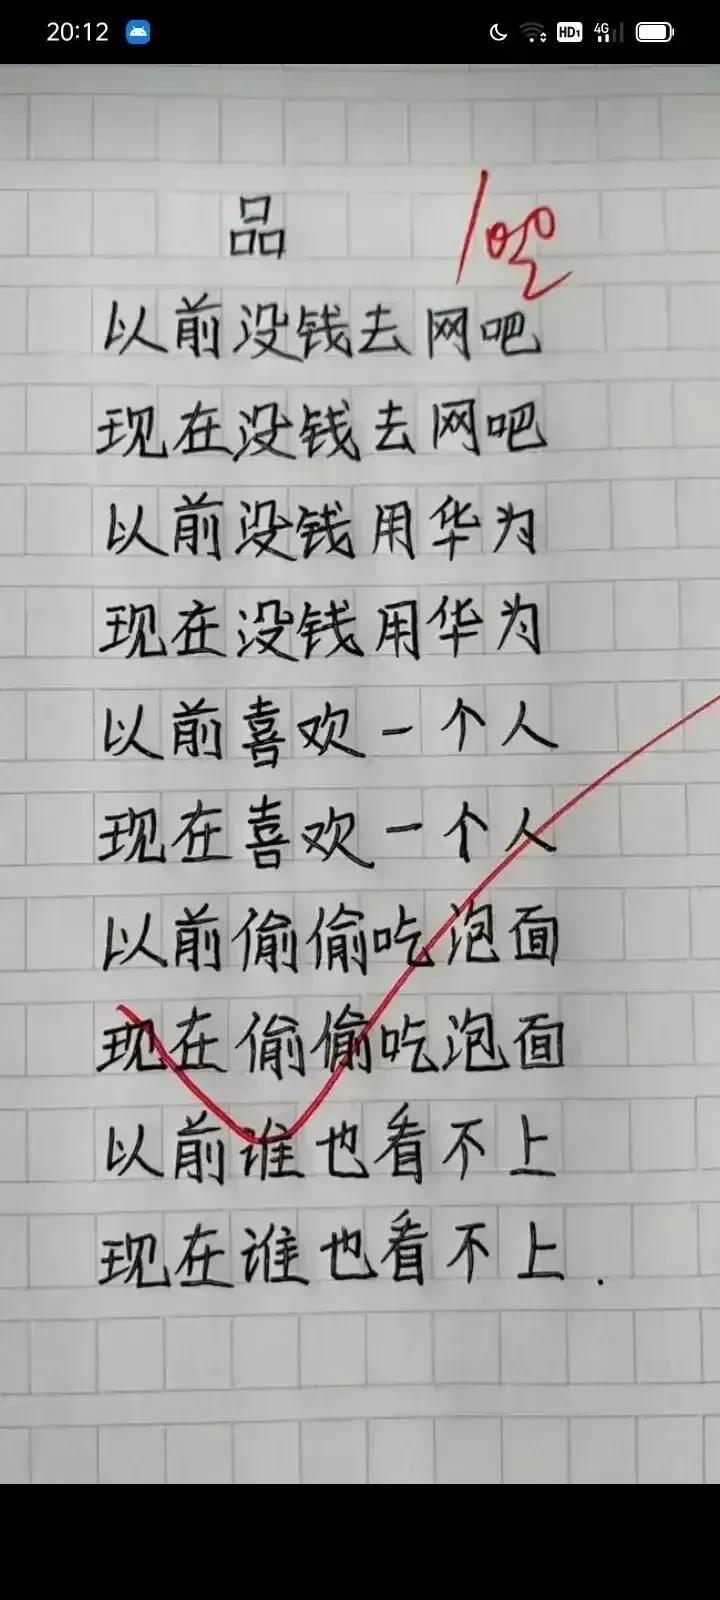 20:12
HD1 4G
品
100
以前没钱去网吧
现在没钱去网吧
以前没钱用华为
现在没钱用华为
以前喜欢一个人
现在喜欢一个人
以前偷偷吃泡面
现在偷偷吃泡面
以前谁也看不上
现在谁也看不上.